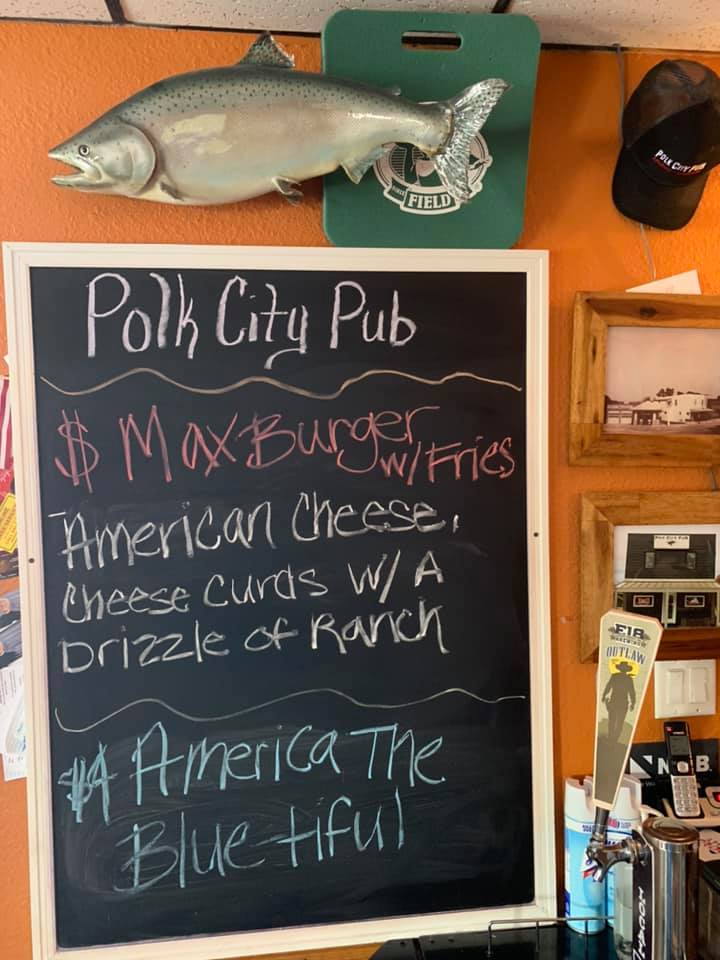 SINCE
FIELD
POLK CITY PUB
Polk City Pub
$ Max Burger
w/Fries
American Cheese,
Cheese Curds W/ A
Drizzle of Ranch
$4 America The
Blue-tiful
POLK CITY PUB
OUTLAW